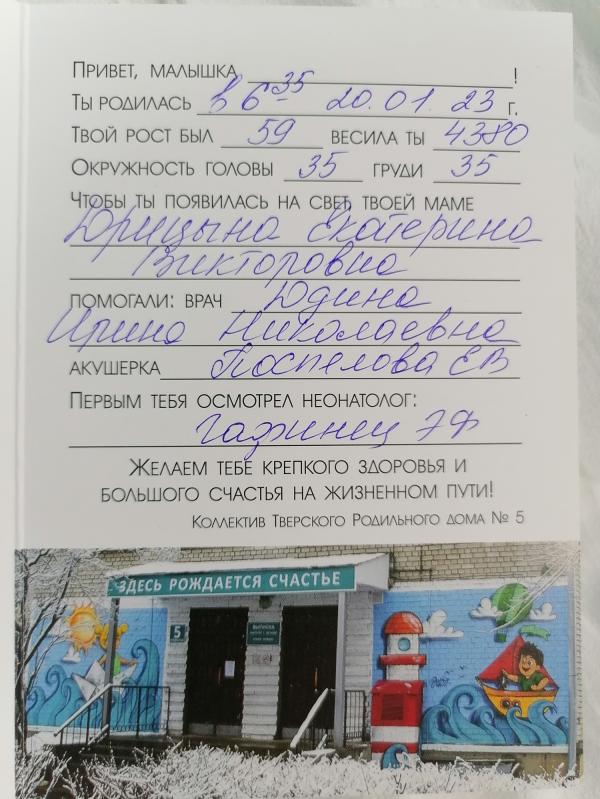 Привет, малышка !
Ты родилась в 6 35 20.01.23 г.
Твой рост был 59 весила ты 4380
Окружность головы 35 груди 35
Чтобы ты появилась на свет, твоей маме
Юрицына Екатерина
Викторовна
помогали: врач Юдина
Ирина Николаевна
акушерка Поспелова ЕВ
Первым тебя осмотрел неонатолог:
ЭФ
Желаем тебе крепкого здоровья и
большого счастья на жизненном пути!
Коллектив Тверского Родильного дома № 5
ЗДЕСЬ РОЖДАЕТСЯ СЧАСТЬЕ
5
ВЫПИСКА